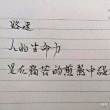 路遥
人的生命力
是在痛苦的煎熬中强